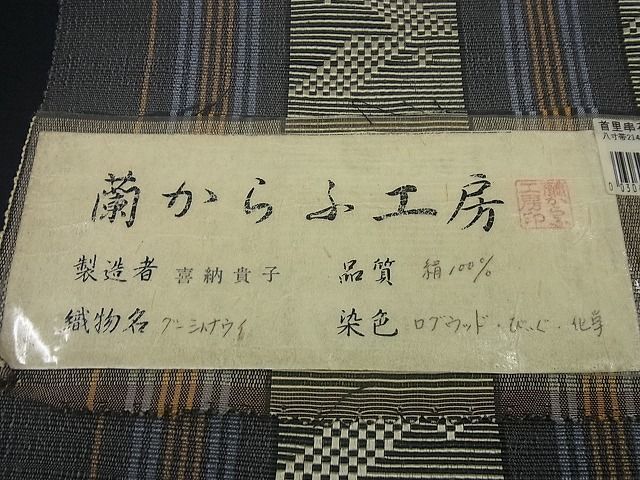 蘭からふ工房
製造者 喜納貴子
品質 絹100%
織物名 グーシハナウイ
染色 ログウッド・びいぐ・化学
工房印
首里串
八寸帯214